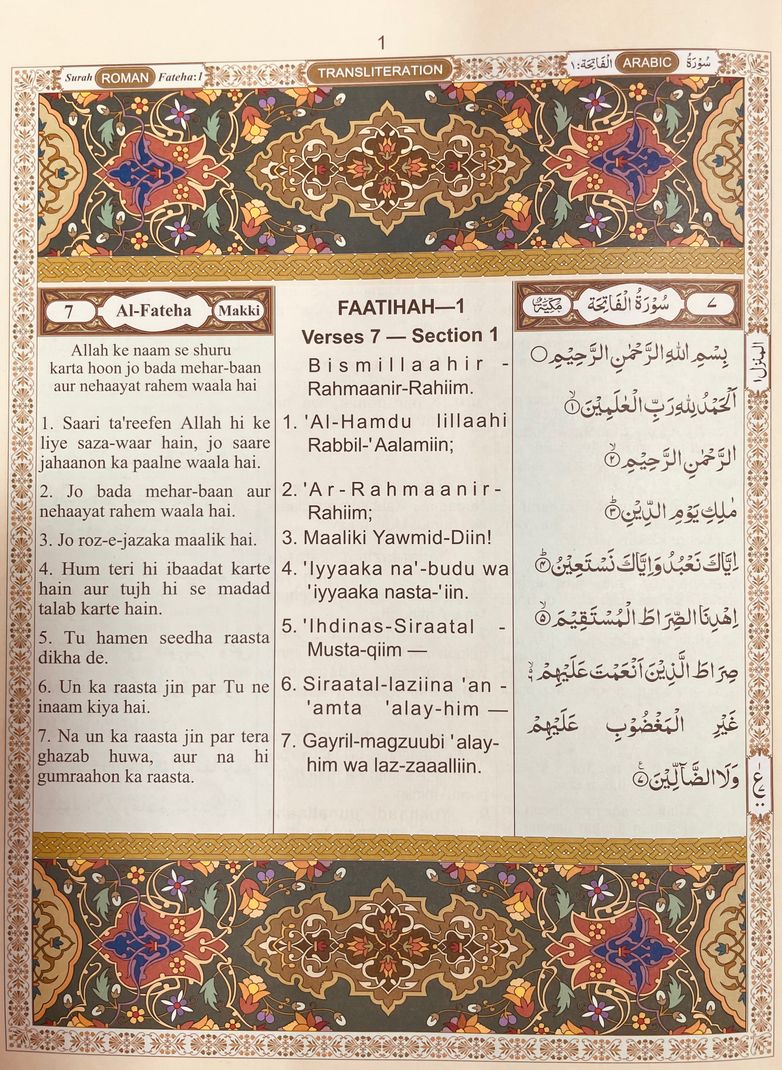 1
Surah ROMAN Fateha:1
TRANSLITERATION
سُوْرَةُ ARABIC الْفَاتِحَة:١
7 Al-Fateha Makki
Allah ke naam se shuru
karta hoon jo bada mehar-baan
aur nehaayat rahem waala hai
1. Saari ta'reefen Allah hi ke
liye saza-waar hain, jo saare
jahaanon ka paalne waala hai.
2. Jo bada mehar-baan aur
nehaayat rahem waala hai.
3. Jo roz-e-jazaka maalik hai.
4. Hum teri hi ibaadat karte
hain aur tujh hi se madad
talab karte hain.
5. Tu hamen seedha raasta
dikha de.
6. Un ka raasta jin par Tu ne
inaam kiya hai.
7. Na un ka raasta jin par tera
ghazab huwa, aur na hi
gumraahon ka raasta.
FAATIHAH—1
Verses 7 — Section 1
Bismillaahir -
Rahmaanir-Rahiim.
1. 'Al-Hamdu lillaahi
Rabbil-'Aalamiin;
2. 'Ar-Rahmaanir-
Rahiim;
3. Maaliki Yawmid-Diin!
4. 'Iyyaaka na'-budu wa
'iyyaaka nasta-'iin.
5. 'Ihdinas-Siraatal -
Musta-qiim —
6. Siraatal-laziina 'an -
'amta 'alay-him —
7. Gayril-magzuubi 'alay-
him wa laz-zaaalliin.
٧ سُوْرَةُ الْفَاتِحَة مَكِّيَّةٌ
بِسْمِ اللهِ الرَّحْمٰنِ الرَّحِيْمِ ○
اَلْحَمْدُ لِلّٰهِ رَبِّ الْعٰلَمِيْنَ ۙ﴿١﴾
الرَّحْمٰنِ الرَّحِيْمِ ۙ﴿٢﴾
مٰلِكِ يَوْمِ الدِّيْنِ ﴿٣﴾
اِيَّاكَ نَعْبُدُ وَاِيَّاكَ نَسْتَعِيْنُ ﴿٤﴾
اِهْدِنَا الصِّرَاطَ الْمُسْتَقِيْمَ ۙ﴿٥﴾
صِرَاطَ الَّذِيْنَ اَنْعَمْتَ عَلَيْهِمْ
غَيْرِ الْمَغْضُوْبِ عَلَيْهِمْ
وَلَا الضَّآلِّيْنَ ﴿٧﴾
المنزل ١
ع